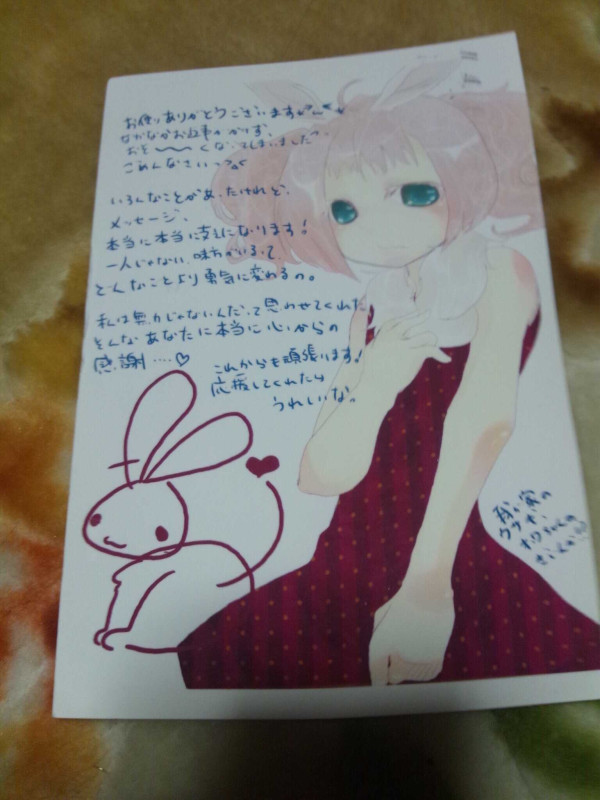 お便りありがとうございます
なかなかお返事かけず、
おそ〜〜くなってしまいましたっ
ごめんなさいっ
いろんなことがあったけれど、
メッセージ、
本当に本当に支えになります！
一人じゃない、味方がいるって
どんなことより勇気に変わるの。
私は無力じゃないんだって思わせてくれた
そんなあなたに本当に心からの
感謝‥‥♡
これからも頑張ります！
応援してくれたら
うれしいな。
我が家の
ウサギ